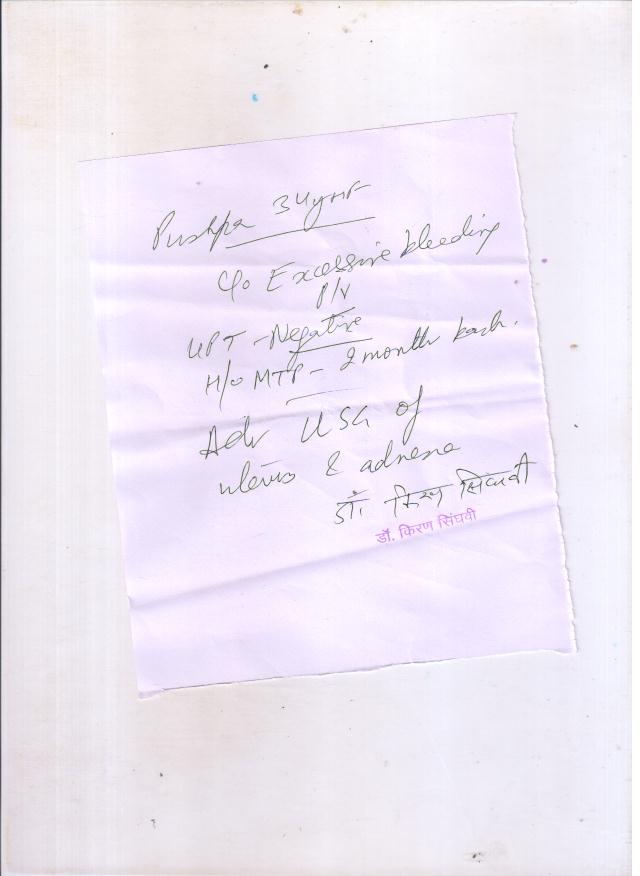 Pushpa 34yrs/F
C/o Excessive bleeding
P/V
UPT - Negative
H/o MTP - 2 month back.
Adv USG of
uterus & adnexa
डॉ. किरण सिंघवी
डॉ. किरण सिंघवी